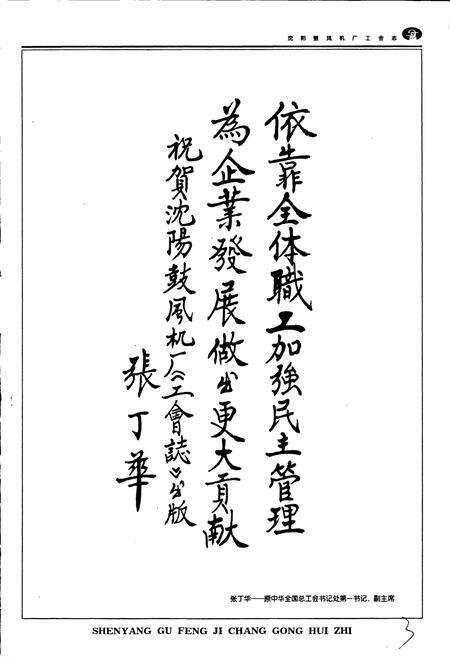 沈阳鼓风机厂工会志
依靠全体職工加強民主管理
為企業發展做出更大貢献
祝賀沈陽鼓風机厂《工會誌》出版
張丁華
张丁华——原中华全国总工会书记处第一书记、副主席
SHENYANG GU FENG JI CHANG GONG HUI ZHI
3